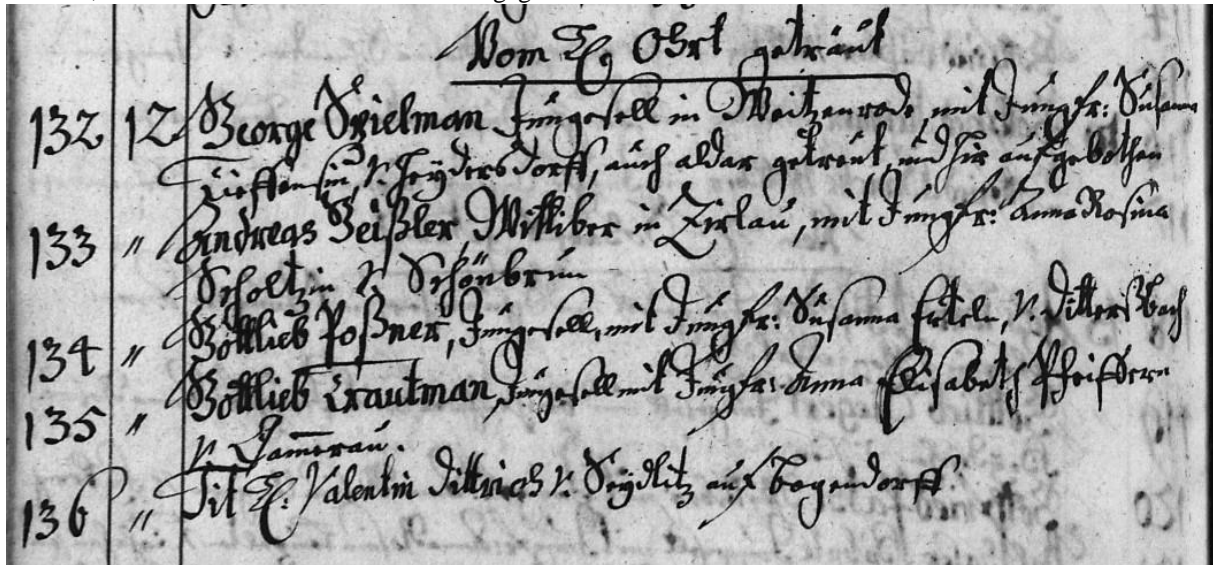 Vom H. Ohrt getraut
132 12 George Spielman Junggesell in Weitzenrode mit Jungfr: Susanna
Tieffensin, v. Heydersdorff, auch aldar getreut, und hir aufgebothen
133 " Andreas Geißler, Wittiber in Zirlau, mit Jungfr: Anna Rosina
Scholtzin v. Schönbrun
134 " Gottlieb Poßner, Junggesell, mit Jungfr: Susanna Erteln, v. Dittersbach
135 " Gottlieb Trautman, Junggesell mit Jungfr: Anna Elisabeth Pfeiffern
v. Camerau.
136 " Tit H. Valentin Dittrich v. Seydlitz auf Bogendorff.